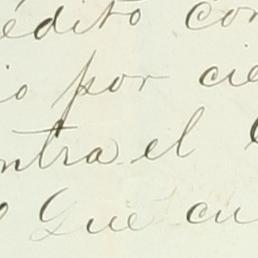 édito con
io por cie
ntra el
Que cu